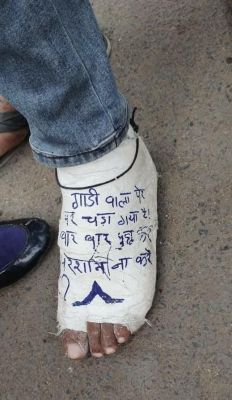 गाडी वाला पेर
पर चढा गया है।
बार बार पुछ कर
परेशान ना करे